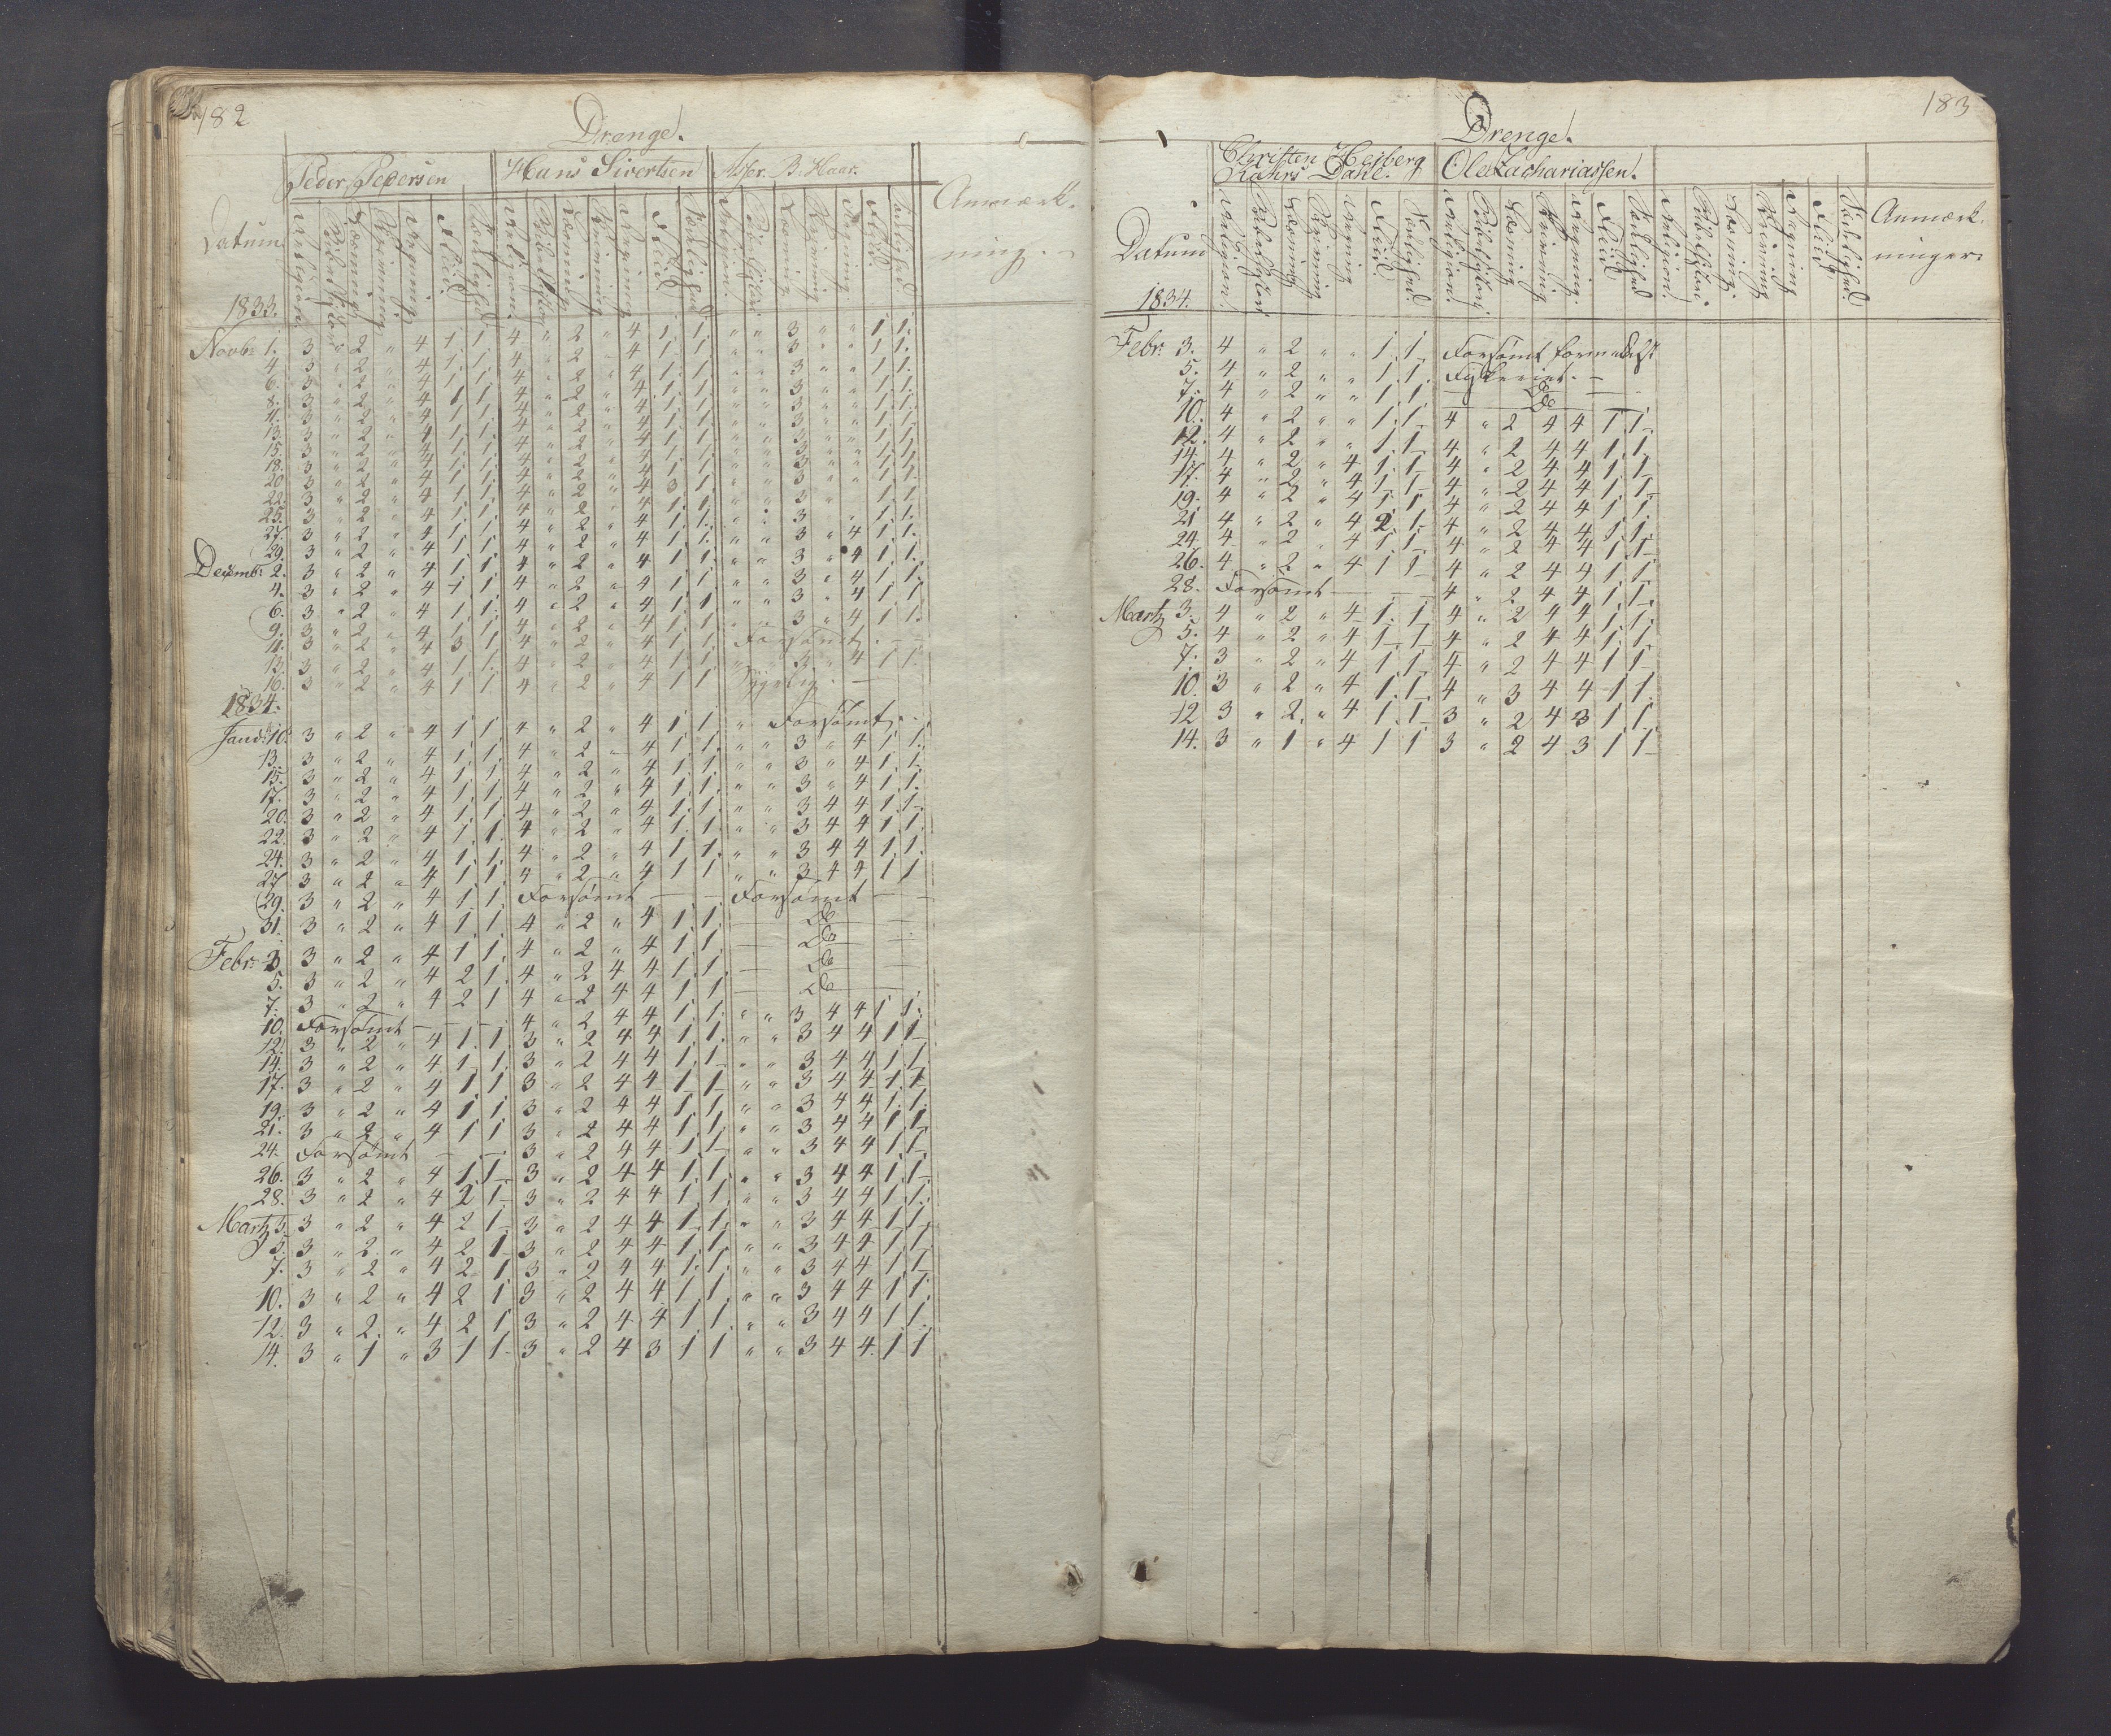 182
Drenge.
Peder Pedersen Hans Sivertsen Asser B. Haar.
Datum Religion Bibelhistorie Læsning Skrivning Regning Flid Sædelighed Religion Bibelhistorie Læsning Skrivning Regning Flid Sædelighed Religion Bibelhistorie Læsning Skrivning Regning Flid Sædelighed Anmærk-
ning.
1833.
Novbr. 1. 3 " 2 " 4 1 1 4 " 2 " 4 1 1 " " 3 " " 1 1
4. 3 " 2 " 4 1 1 4 " 2 " 4 1 1 " " 3 " " 1 1
6. 3 " 2 " 4 1 1 4 " 2 " 4 1 1 " " 3 " " 1 1
8. 3 " 2 " 4 1 1 4 " 2 " 4 1 1 " " 3 " " 1 1
11. 3 " 2 " 4 1 1 4 " 2 " 4 1 1 " " 3 " " 1 1
13. 3 " 2 " 4 1 1 4 " 2 " 4 1 1 " " 3 " " 1 1
15. 3 " 2 " 4 1 1 4 " 2 " 4 1 1 " " 3 " " 1 1
18. 3 " 2 " 4 1 1 4 " 2 " 4 1 1 " " 3 " " 1 1
20 3 " 2 " 4 1 1 4 " 2 " 4 3 1 " " 3 " " 1 1
22. 3 " 2 " 4 1 1 4 " 2 " 4 1 1 " " 3 " " 1 1
25. 3 " 2 " 4 1 1 4 " 2 " 4 1 1 " " 3 " " 1 1
27. 3 " 2 " 4 1 1 4 " 2 " 4 1 1 " " 3 " 4 1 1
29. 3 " 2 " 4 1 1 4 " 2 " 4 1 1 " " 3 " 4 1 1
Decemb. 2. 3 " 2 " 4 1 1 4 " 2 " 4 1 1 " " 3 " 4 1 1
4. 3 " 2 " 4 1 1 4 " 2 " 4 1 1 " " 3 " 4 1 1
6. 3 " 2 " 4 1 1 4 " 2 " 4 1 1 " " 3 " 4 1 1
9. 3 " 2 " 4 1 1 4 " 2 " 4 1 1 Forsømt. —
11. 3 " 2 " 4 3 1 4 " 2 " 4 1 1 " " 3 " 4 1 1
13. 3 " 2 " 4 1 1 4 " 2 " 4 1 1
16. 3 " 2 " 4 1 1 4 " 2 " 4 1 1 Sygelig. —
1834.
Janu. 10. 3 " 2 " 4 1 1 4 " 2 " 4 1 1 " Forsømt
13. 3 " 2 " 4 1 1 4 " 2 " 4 1 1 " " 3 " 4 1 1
15. 3 " 2 " 4 1 1 4 " 2 " 4 1 1 " " 3 " 4 1 1
17. 3 " 2 " 4 1 1 4 " 2 " 4 1 1 " " 3 " 4 1 1
20. 3 " 2 " 4 1 1 4 " 2 " 4 1 1 " " 3 4 4 1 1
22. 3 " 2 " 4 1 1 4 " 2 " 4 1 1 " " 3 4 4 1 1
24. 3 " 2 " 4 1 1 4 " 2 " 4 1 1 " " 3 4 4 1 1
27 3 " 2 " 4 1 1 4 " 2 " 4 1 1 " " 3 4 4 1 1
29. 3 " 2 " 4 1 1 Forsømt — — Forsømt — —
31. 3 " 2 " 4 1 1 4 " 2 " 4 1 1 — Do —
Febr. 3 3 " 2 " 4 1 1 4 " 2 " 4 1 1 — Do —
5. 3 " 2 " 4 2 1 4 " 2 4 4 1 1 — Do —
7. 3 " 2 " 4 2 1 4 " 2 4 4 1 1 — Do —
10. Forsømt — — 4 " 2 4 4 1 1 " " 3 4 4 1 1
12. 3 " 2 " 4 1 1 3 " 2 4 4 1 1 " " 3 4 4 1 1
14. 3 " 2 " 4 1 1 3 " 2 4 4 1 1 " " 3 4 4 1 1
17. 3 " 2 " 4 1 1 3 " 2 4 4 1 1 " " 3 4 4 1 1
19. 3 " 2 " 4 1 1 3 " 2 4 4 1 1 " " 3 4 4 1 1
21. 3 " 2 " 4 1 1 3 " 2 4 4 1 1 " " 3 4 4 1 1
24. Forsømt — — 3 " 2 4 4 1 1 " " 3 4 4 1 1
26. 3 " 2 " 4 1 1 3 " 2 4 4 1 1 " " 3 4 4 1 1
28. 3 " 2 " 4 2 1 3 " 2 4 4 1 1 " " 3 4 4 1 1
Martz 3. 3 " 2 " 4 2 1 3 " 2 4 4 1 1 " " 3 4 4 1 1
5. 3 " 2 " 4 2 1 3 " 2 4 4 1 1 " " 3 4 4 1 1
7. 3 " 2 " 4 2 1 3 " 2 4 4 1 1 " " 3 4 4 1 1
10. 3 " 2 " 4 2 1 3 " 2 4 4 1 1 " " 3 4 4 1 1
12. 3 " 2 " 4 2 1 3 " 2 4 4 1 1 " " 3 4 4 1 1
14. 3 " 1 " 3 1 1 3 " 2 4 3 1 1 " " 3 4 4 1 1
183
Drenge.
Christen Heiberg
Kahrs Dahl. Ole Zachariassen.
Datum Religion Bibelhistorie Læsning Skrivning Regning Flid Sædelighed Religion Bibelhistorie Læsning Skrivning Regning Flid Sædelighed Religion Bibelhistorie Læsning Skrivning Regning Flid Sædelighed Anmærk-
ninger.
1834.
Febr. 3. 4 " 2 " " 1 1 Forsømt formedelst
5. 4 " 2 " " 1 1 Fiskeriet. —
7. 4 " 2 " " 1 1 — Do —
10. 4 " 2 " " 1 1 — Do —
12. 4 " 2 " " 1 1 4 " 2 4 4 1 1
14. 4 " 2 " 4 1 1 4 " 2 4 4 1 1
17. 4 " 2 " 4 1 1 4 " 2 4 4 1 1
19. 4 " 2 " 4 1 1 4 " 2 4 4 1 1
21 4 " 2 " 4 2 1 4 " 2 4 4 1 1
24 4 " 2 " 4 1 1 4 " 2 4 4 1 1
26. 4 " 2 " 4 1 1 4 " 2 4 4 1 1
28. Forsømt — — 4 " 2 4 4 1 1
Martz 3. 4 " 2 " 4 1 1 4 " 2 4 4 1 1
5. 4 " 2 " 4 1 1 4 " 2 4 4 1 1
7. 3 " 2 " 4 1 1 4 " 2 4 4 1 1
10. 3 " 2 " 4 1 1 4 " 3 4 4 1 1
12 3 " 2 " 4 1 1 3 " 2 4 3 1 1
14. 3 " 1 " 4 1 1 3 " 2 4 3 1 1